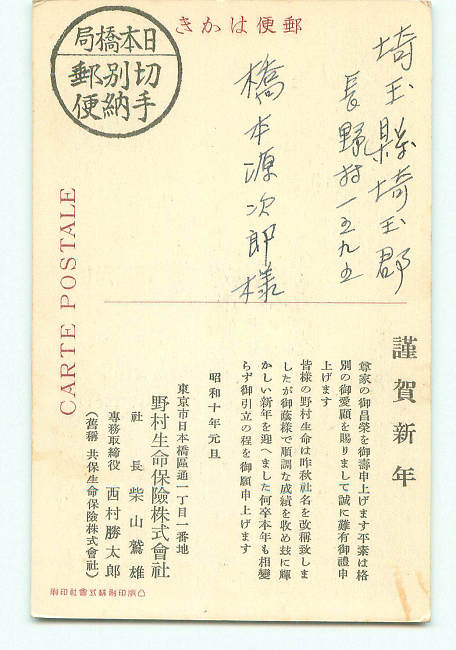 きかは便郵
日本橋局
切手
別納
郵便
埼玉縣埼玉郡
長野村一五九五
橋本源次郎様
CARTE POSTALE
謹賀新年
尊家の御昌榮を御壽申上げます平素は格
別の御愛顧を賜りまして誠に難有御禮申
上げます
皆様の野村生命は昨秋社名を改稱致しま
したが御蔭様で順調な成績を收め玆に輝
かしい新年を迎へました何卒本年も相變
らず御引立の程を御願申上げます
昭和十年元旦
東京市日本橋區通一丁目一番地
野村生命保險株式會社
社長 柴山鷲雄
專務取締役 西村勝太郎
(舊稱 共保生命保險株式會社)
印刷株式會社印刷